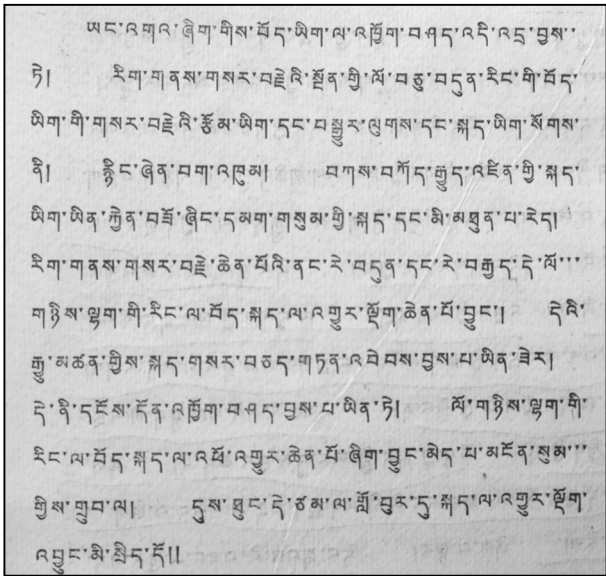 ཡང་འགའ་ཞིག་གིས་བོད་ཡིག་ལ་འཁྱོག་བཤད་འདི་འདྲ་བྱས་་
ཏེ། རིག་གནས་གསར་བརྗེའི་སྔོན་གྱི་ལོ་བཅུ་བདུན་རིང་གི་བོད་
ཡིག་གི་གསར་བརྗེའི་རྩོམ་ཡིག་དང་བསྒྱུར་ལུགས་དང་སྐད་ཡིག་སོགས་
ནི། རྙིང་ཞེན་བག་འཁུམ། བཀས་བཀོད་རྒྱུད་འཛིན་གྱི་སྐད་
ཡིག་ཡིན་རྐྱེན་བཟོ་ཞིང་དམག་གསུམ་གྱི་སྐད་དང་མི་མཐུན་པ་རེད།
རིག་གནས་གསར་བརྗེ་ཆེན་པོའི་ནང་རེ་བདུན་དང་རེ་བརྒྱད་དེ་ལོ་་་
གཉིས་ལྷག་གི་རིང་ལ་བོད་སྐད་ལ་འགྱུར་ལྡོག་ཆེན་པོ་བྱུང་། དེའི་
རྒྱུ་མཚན་གྱིས་སྐད་གསར་བཅད་གཏན་འབེབས་བྱས་པ་ཡིན་ཟེར།
དེ་ནི་དངོས་དོན་འཁྱོག་བཤད་བྱས་པ་ཡིན་ཏེ། ལོ་གཉིས་ལྷག་གི་
རིང་ལ་བོད་སྐད་ལ་འཕོ་འགྱུར་ཆེན་པོ་ཞིག་བྱུང་མེད་པ་མངོན་སུམ་་་
གྱིས་གྲུབ་ལ། དུས་ཐུང་དེ་ཙམ་ལ་གློ་བུར་དུ་སྐད་ལ་འགྱུར་ལྡོག་
འབྱུང་མི་སྲིད་དོ།།